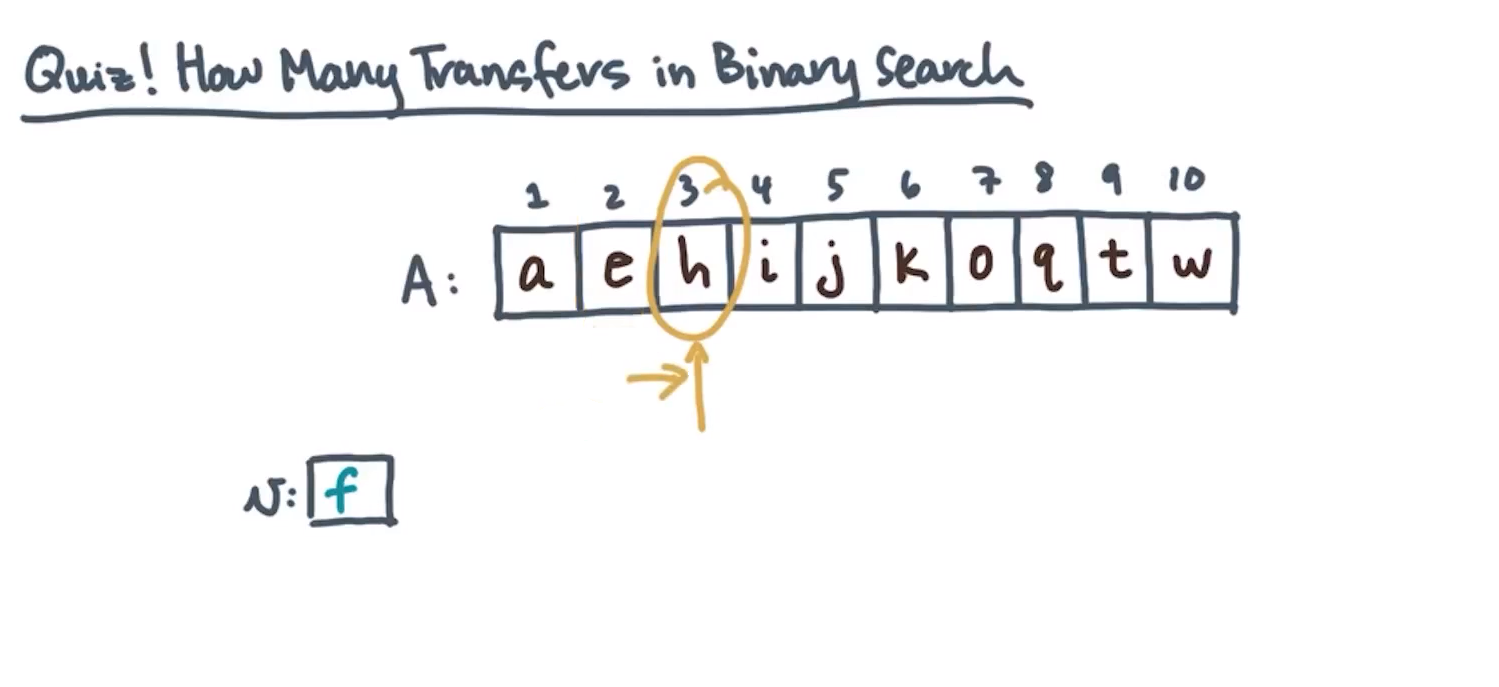 Quiz! How Many Transfers in Binary Search
1 2 3 4 5 6 7 8 9 10
A: a e h i j k o q t w
v: f